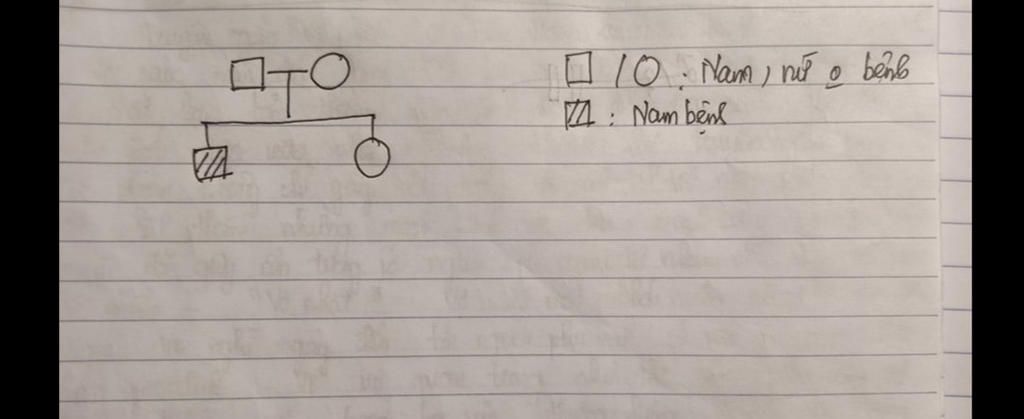 / : Nam, nữ o bệnh
: Nam bệnh